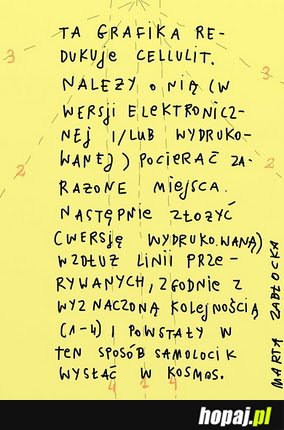 TA GRAFIKA RE-
DUKUJE CELLULIT.
NALEŻY O NIĄ (W
WERSJI ELEKTRONICZ-
NEJ I/LUB WYDRUKO-
WANEJ) POCIERAĆ ZA-
RAŻONE MIEJSCA.
NASTĘPNIE ZŁOŻYĆ
(WERSJĘ WYDRUKOWANĄ)
WZDŁUŻ LINII PRZE-
RYWANYCH, ZGODNIE Z
WYZNACZONĄ KOLEJNOŚCIĄ
(1-4) I POWSTAŁY W
TEN SPOSÓB SAMOLOCIK
WYSŁAĆ W KOSMOS.
MARTA ZABŁOCKA
3
3
2
2
4 1 4
hopaj.pl